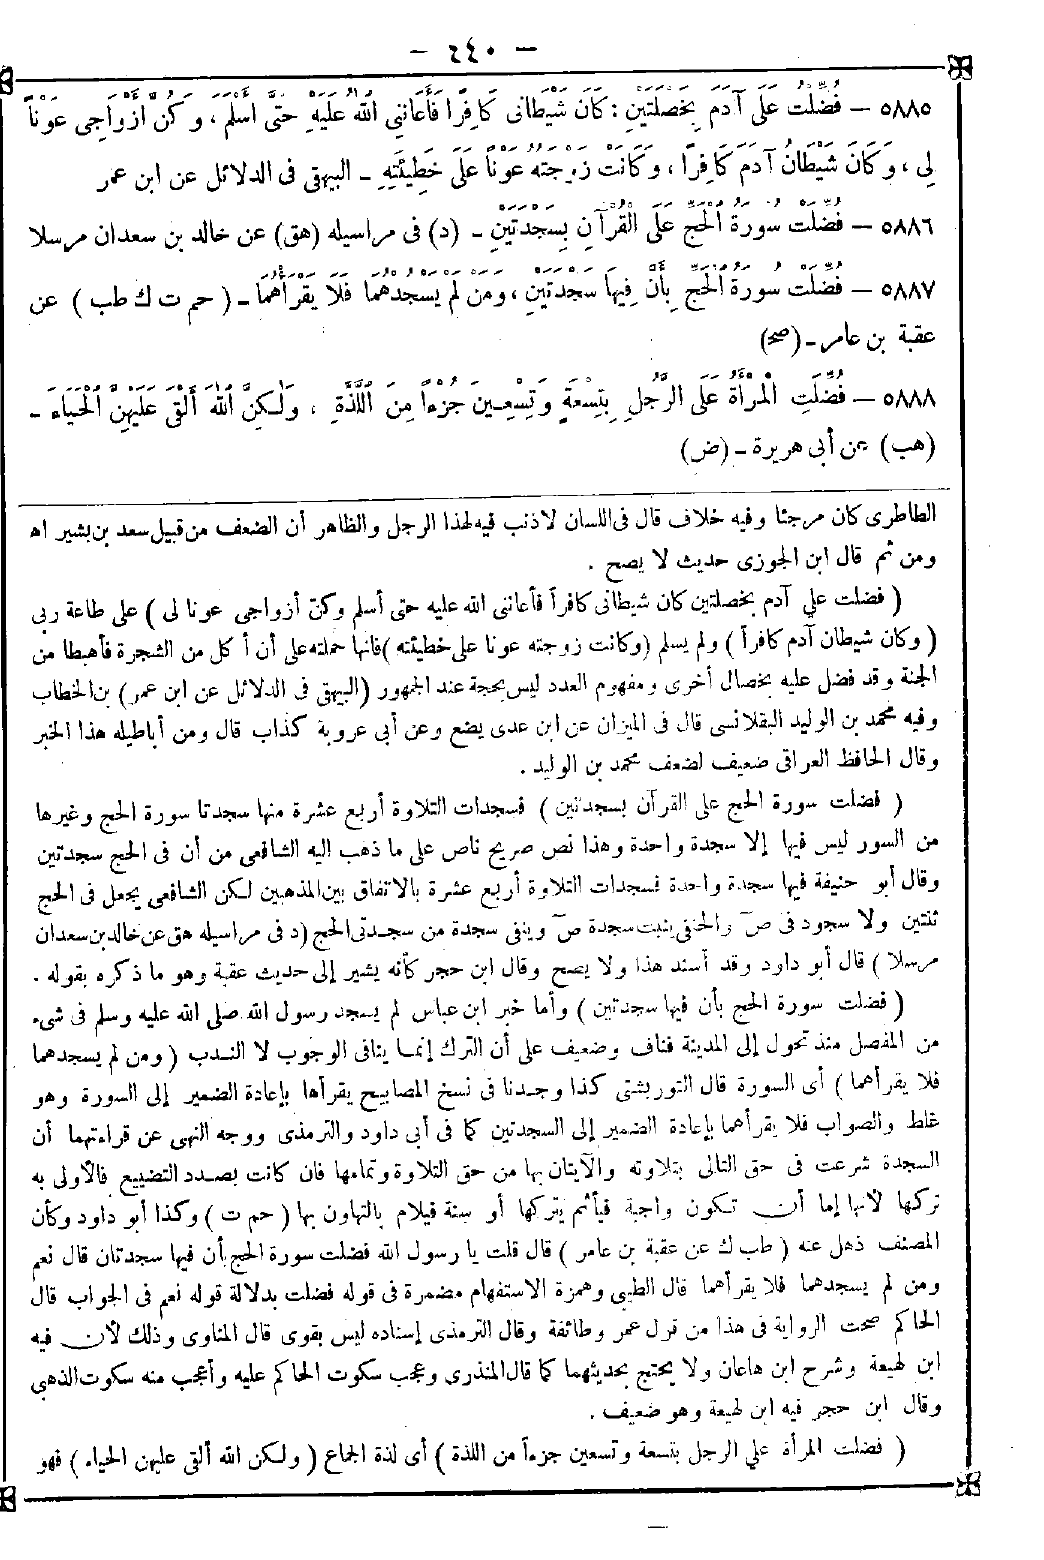 - ٤٤٠ -
٥٨٨٥ - فُضِّلْتُ عَلَى آدَمَ بِخَصْلَتَيْنِ : كَانَ شَيْطَانِى كَافِرًا فَأَعَانَنِى اللهُ عَلَيْهِ حَتَّى أَسْلَمَ ، وَكُنَّ أَزْوَاجِى عَوْنًا
لِى ، وَكَانَ شَيْطَانُ آدَمَ كَافِرًا ، وَكَانَتْ زَوْجَتُهُ عَوْنًا عَلَى خَطِيئَتِهِ - البيهقى فى الدلائل عن ابن عمر
٥٨٨٦ - فُضِّلَتْ سُورَةُ الْحَجِّ عَلَى الْقُرْآنِ بِسَجْدَتَيْنِ - (د) فى مراسيله (هق) عن خالد بن سعدان مرسلا
٥٨٨٧ - فُضِّلَتْ سُورَةُ الْحَجِّ بِأَنَّ فِيهَا سَجْدَتَيْنِ ، وَمَنْ لَمْ يَسْجُدْهُمَا فَلَا يَقْرَأْهُمَا - ( حم ت ك طب ) عن
عقبة بن عامر - (صح)
٥٨٨٨ - فُضِّلَتِ الْمَرْأَةُ عَلَى الرَّجُلِ بِتِسْعَةٍ وَتِسْعِينَ جُزْءًا مِنَ اللَّذَّةِ ، وَلَكِنَّ اللهَ أَلْقَى عَلَيْهِنَّ الْحَيَاءَ -
(هب) عن أبى هريرة - (ض)
الطاطرى كان مرجئا وفيه خلاف قال فى اللسان لاذنب فيه لهذا الرجل والظاهر أن الضعف من قبيل سعد بن بشير اه
ومن ثم قال ابن الجوزى حديث لا يصح .
( فضلت على آدم بخصلتين كان شيطانى كافراً فأعاننى الله عليه حتى أسلم وكنّ أزواجى عونا لى ) على طاعة ربى
( وكان شيطان آدم كافراً ) ولم يسلم (وكانت زوجته عونا على خطيئته )فانها حملته على أن أكل من الشجرة فأهبطا من
الجنة وقد فضل عليه بخصال أخرى ومفهوم العدد ليس بحجة عند الجمهور (البيهقى فى الدلائل عن ابن عمر) بن الخطاب
وفيه محمد بن الوليد البقلانسى قال فى الميزان عن ابن عدى يضع وعن أبى عروبة كذاب قال ومن أباطيله هذا الخبر
وقال الحافظ العراقى ضعيف لضعف محمد بن الوليد .
( فضلت سورة الحج على القرآن بسجدتين ) فسجدات التلاوة أربع عشرة منها سجدتا سورة الحج وغيرها
من السور ليس فيها إلا سجدة واحدة وهذا نص صريح ناص على ما ذهب اليه الشافعى من أن فى الحج سجدتين
وقال أبو حنيفة فيها سجدة واحدة فسجدات التلاوة أربع عشرة بالاتفاق بين المذهبين لكن الشافعى يجعل فى الحج
ثنتين ولا سجود فى صۤ والحنفى يثبت سجدة صۤ وينفى سجدة من سجدتى الحج (د فى مراسيله هق عن خالد بن سعدان
مرسلا ) قال أبو داود وقد أسند هذا ولا يصح وقال ابن حجر كأنه يشير إلى حديث عقبة وهو ما ذكره بقوله .
( فضلت سورة الحج بأن فيها سجدتين ) وأما خبر ابن عباس لم يسجد رسول الله صلى الله عليه وسلم فى شىء
من المفصل منذ تحول إلى المدينة فناف وضعيف على أن الترك إنما ينافى الوجوب لا الندب ( ومن لم يسجدهما
فلا يقرأهما ) أى السورة قال التوربشتى كذا وجدنا فى نسخ المصابيح يقرأها بإعادة الضمير إلى السورة وهو
غلط والصواب فلا يقرأهما بإعادة الضمير إلى السجدتين كما فى أبى داود والترمذى ووجه النهى عن قراءتهما أن
السجدة شرعت فى حق التالى بتلاوته والآيتان بها من حق التلاوة وتمامها فان كانت بصدد التضييع فالأولى به
تركها لأنها إما أن تكون واجبة فيأثم بتركها أو سنة فيلام بالتهاون بها ( حم ت ) وكذا أبو داود وكأن
المصنف ذهل عنه ( طب ك عن عقبة بن عامر ) قال قلت يا رسول الله فضلت سورة الحج بأن فيها سجدتان قال نعم
ومن لم يسجدهما فلا يقرأهما قال الطيبى وهمزة الاستفهام مضمرة فى قوله فضلت بدلالة قوله نعم فى الجواب قال
الحاكم صحت الرواية فى هذا من قول عمر وطائفة وقال الترمذى إسناده ليس بقوى قال المناوى وذلك لأن فيه
ابن لهيعة وشرح ابن هاعان ولا يحتج بحديثهما كما قال المنذرى وعجب سكوت الحاكم عليه وأعجب منه سكوت الذهبى
وقال ابن حجر فيه ابن لهيعة وهو ضعيف .
( فضلت المرأة على الرجل بتسعة وتسعين جزءاً من اللذة ) أى لذة الجماع ( ولكن الله ألقى عليهن الحياء ) فهو